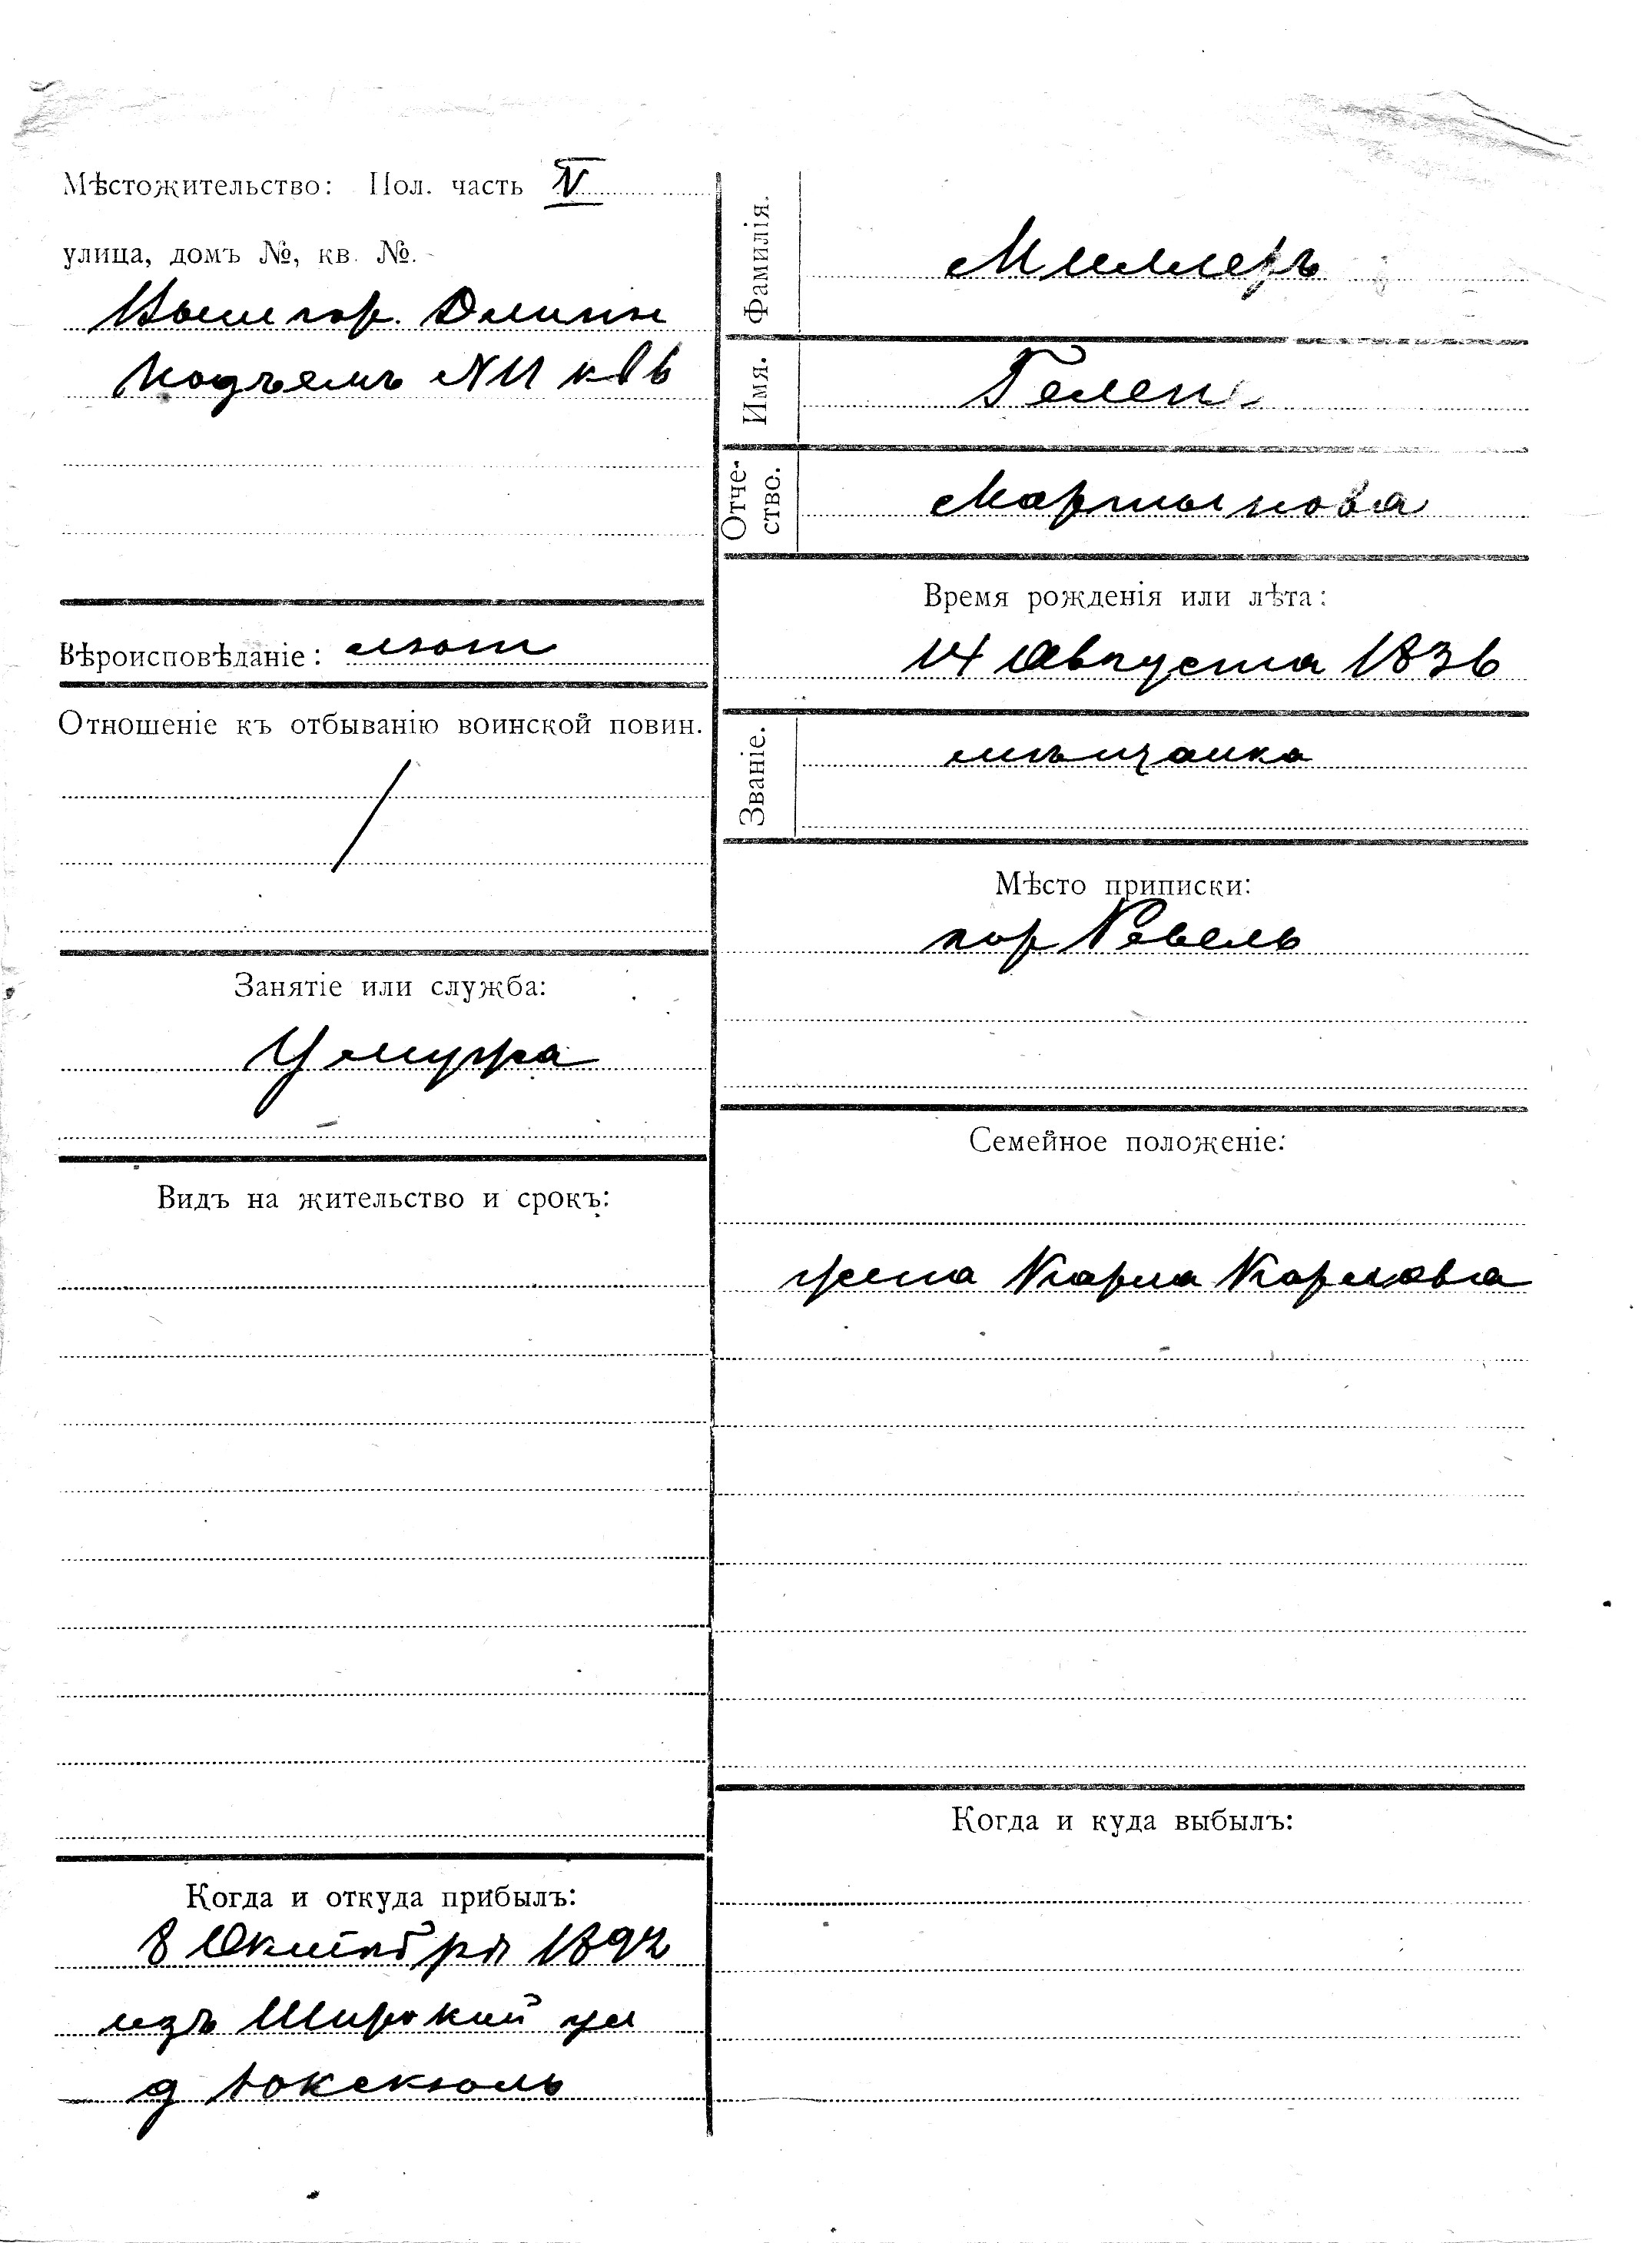 Мѣстожительство: Пол. часть IV
улица, домъ №, кв. №.
Вышгор. Длинн
подъемъ № 11 кв 6
Вѣроисповѣданіе: лют
Отношеніе къ отбыванію воинской повин.
/
Занятіе или служба:
У мужа
Видъ на жительство и срокъ:
Когда и откуда прибылъ:
8 Октября 1892
изъ Широкий ул
д Юкскюль
Фамилія.
Миллеръ
Имя.
Гелене
Отче-
ство.
Мартынова
Время рожденія или лѣта:
14 Августа 1836
Званіе.
мѣщанка
Мѣсто приписки:
гор Ревель
Семейное положеніе:
жена Карла Карлова
Когда и куда выбылъ: